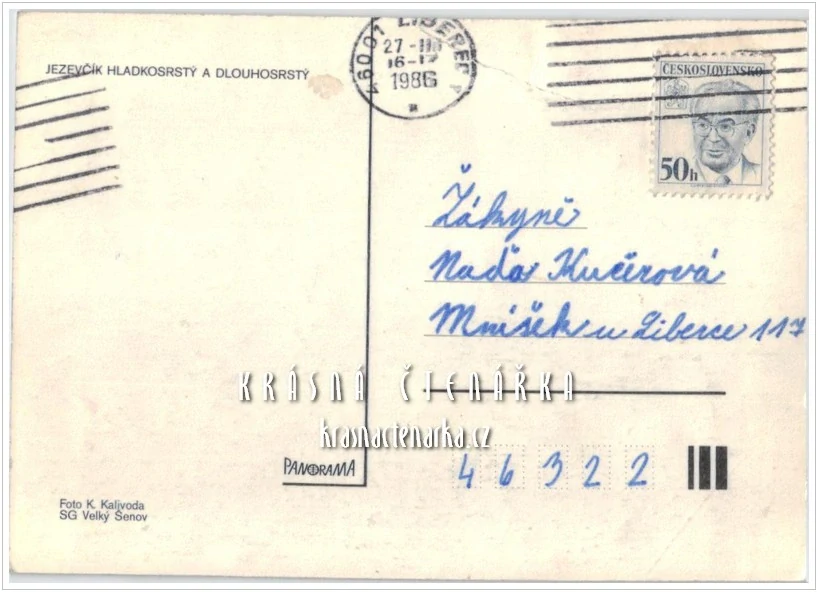 JEZEVČÍK HLADKOSRSTÝ A DLOUHOSRSTÝ
46001 LIBEREC 1
27 -III
16-17
1986
ČESKOSLOVENSKO
50h
Žákyně
Naďa Kučerová
Mníšek u Liberce 117
KRÁSNÁ ČTENÁŘKA
krasnactenarka.cz
PANORAMA
46322
Foto K. Kalivoda
SG Velký Šenov